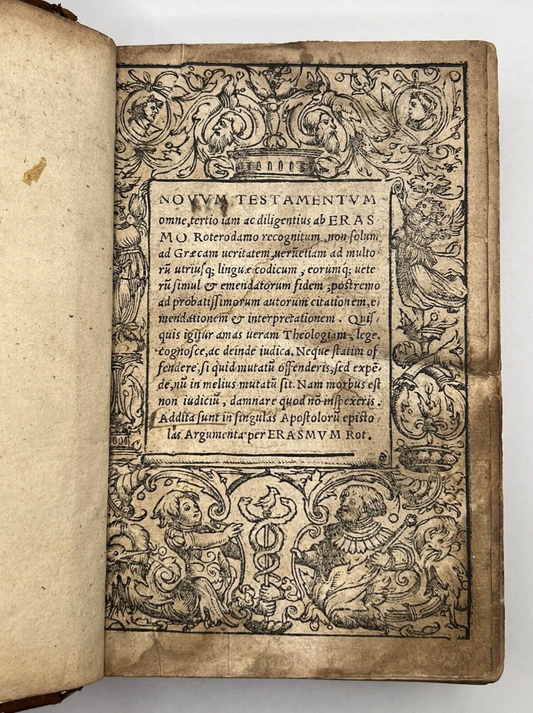 NOVVM TESTAMENTVM
omne, tertio iam ac diligentius ab ERAS-
MO Roterodamo recognitum, non solum
ad Græcam ueritatem, uerũetiam ad multo-
rũ utriusq; linguæ codicum, eorumq; uete
rũ simul & emendatorum fidem, postremo
ad probatissimorum autorum citationem, e-
mendationem & interpretationem. Quis
quis igitur amas ueram Theologiam, lege,
cognosce, ac deinde iudica. Neque statim of
fendere, si quid mutatũ offenderis, sed expẽ
de, nũ in melius mutatũ sit. Nam morbus est
non iudiciũ, damnare quod nõ inspexeris.
Addita sunt in singulas Apostolorũ episto
las Argumenta per ERASMVM Rot.